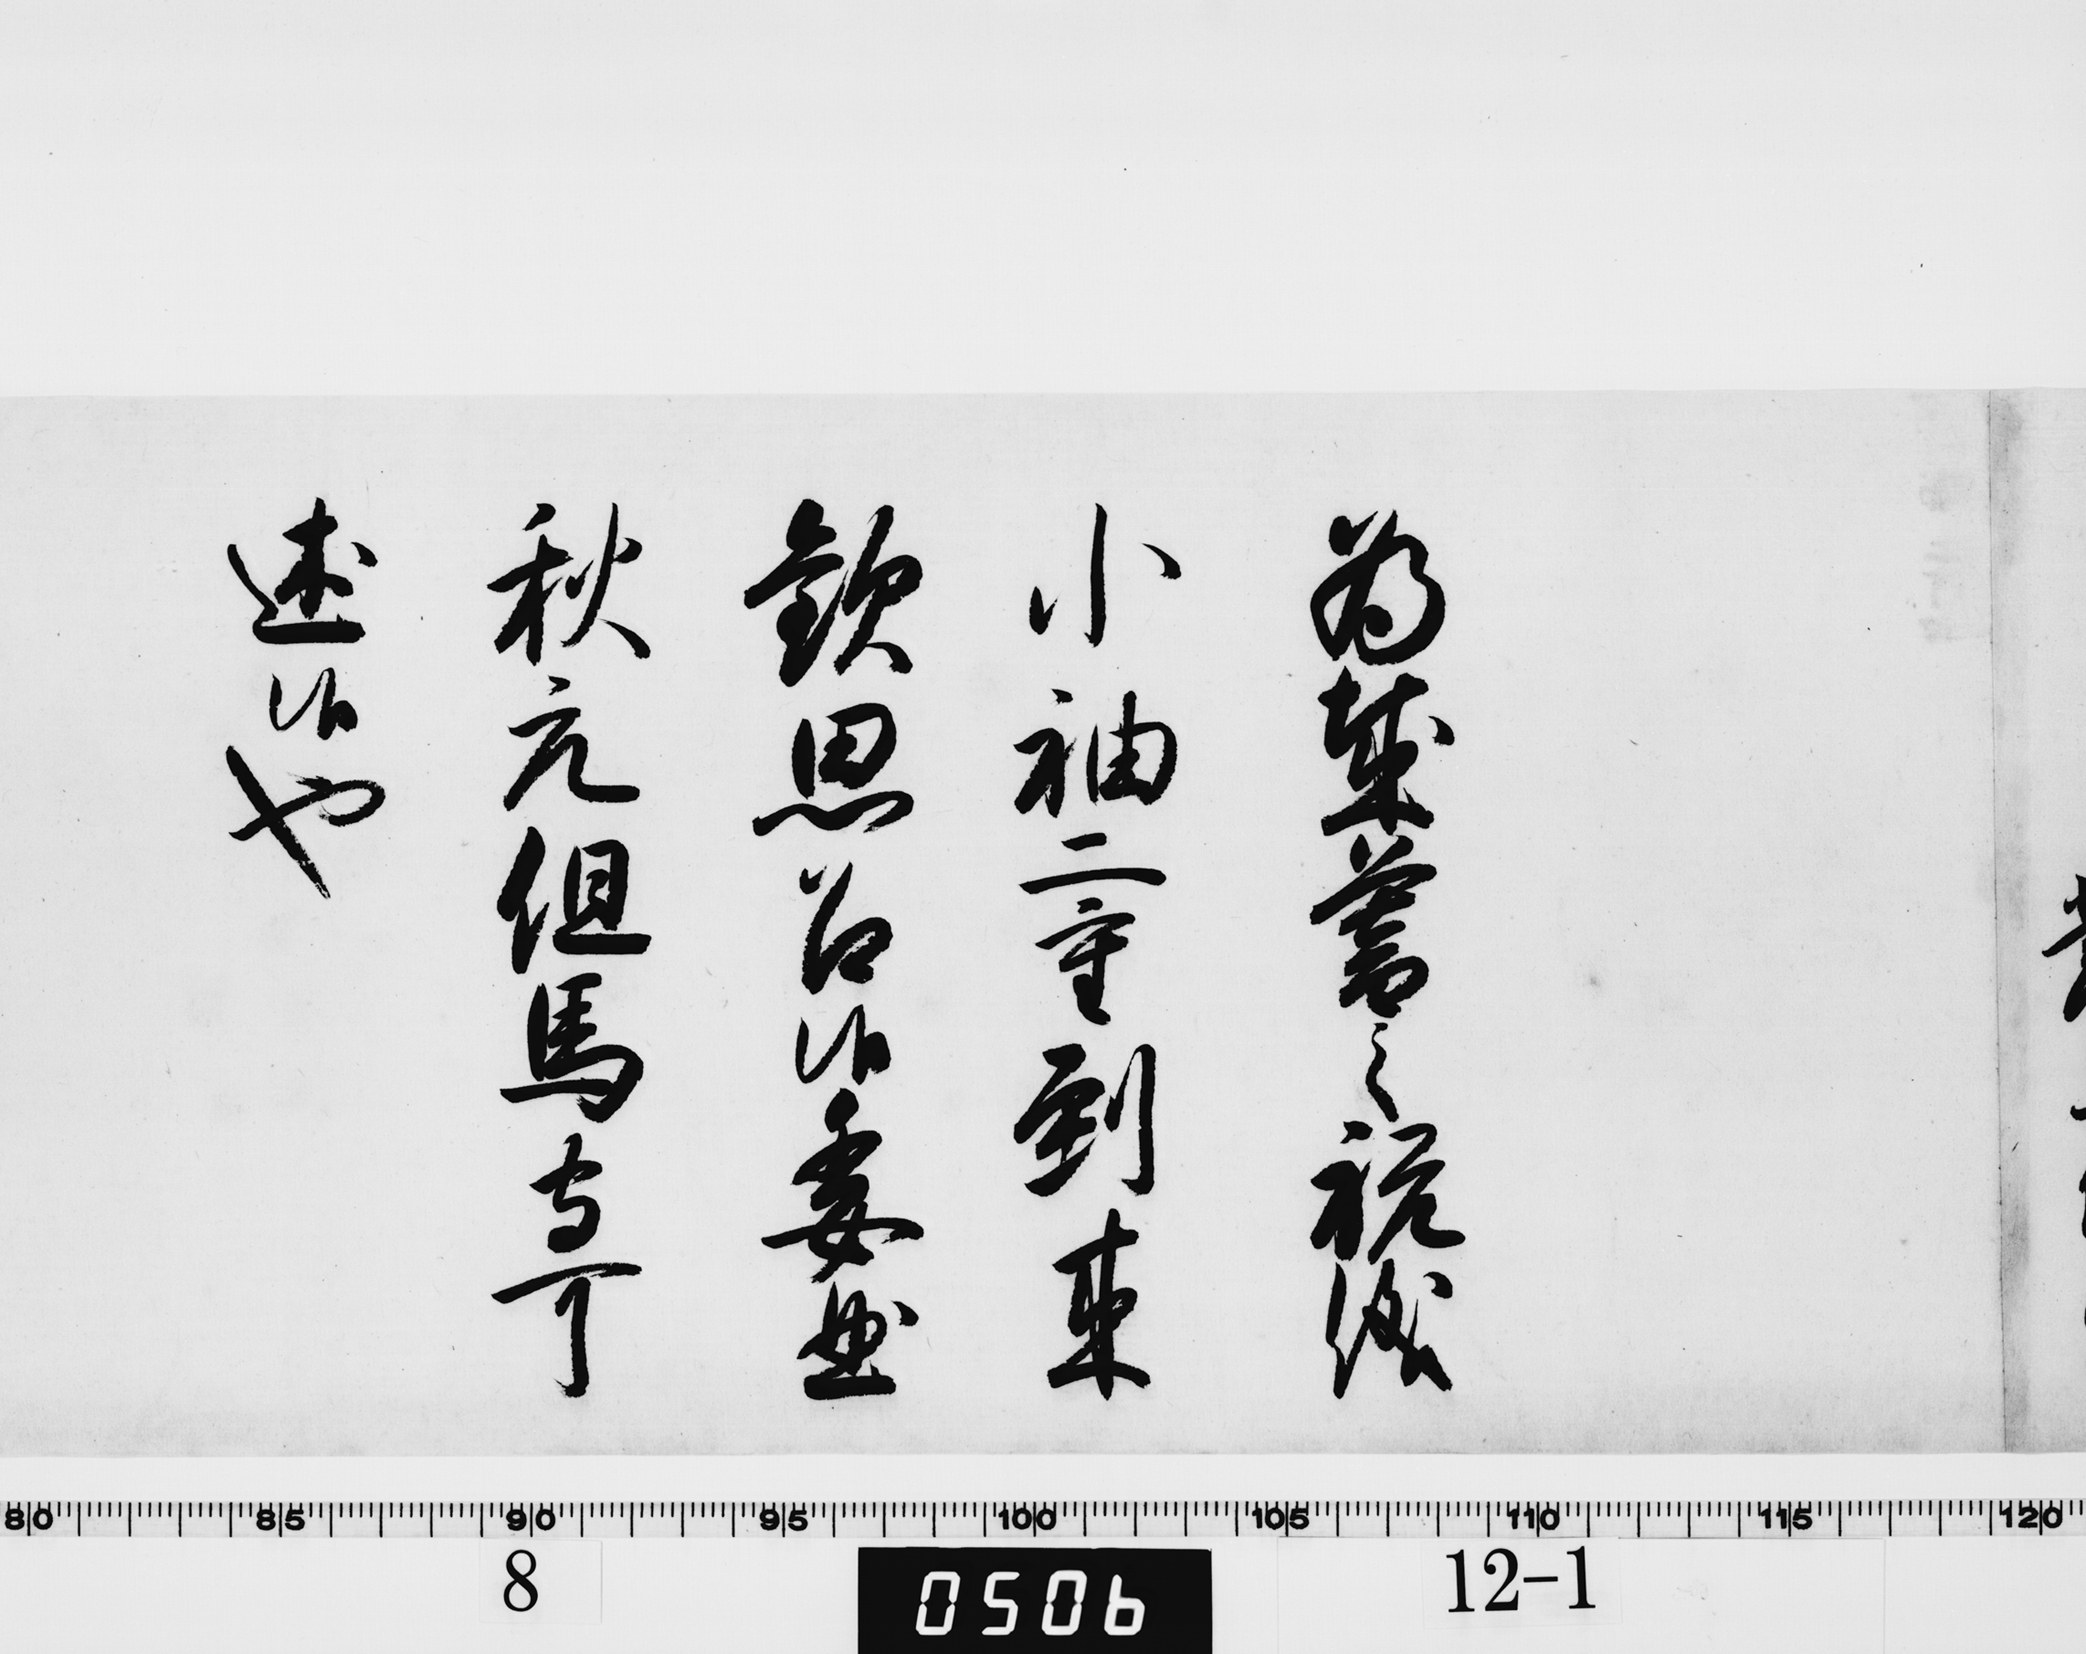 為歳暮之祝儀
小袖二重到来
欽思召候委曲
秋元但馬守可
述候也
80 85 90 95 100 105 110 115 120
8 0506 12-1